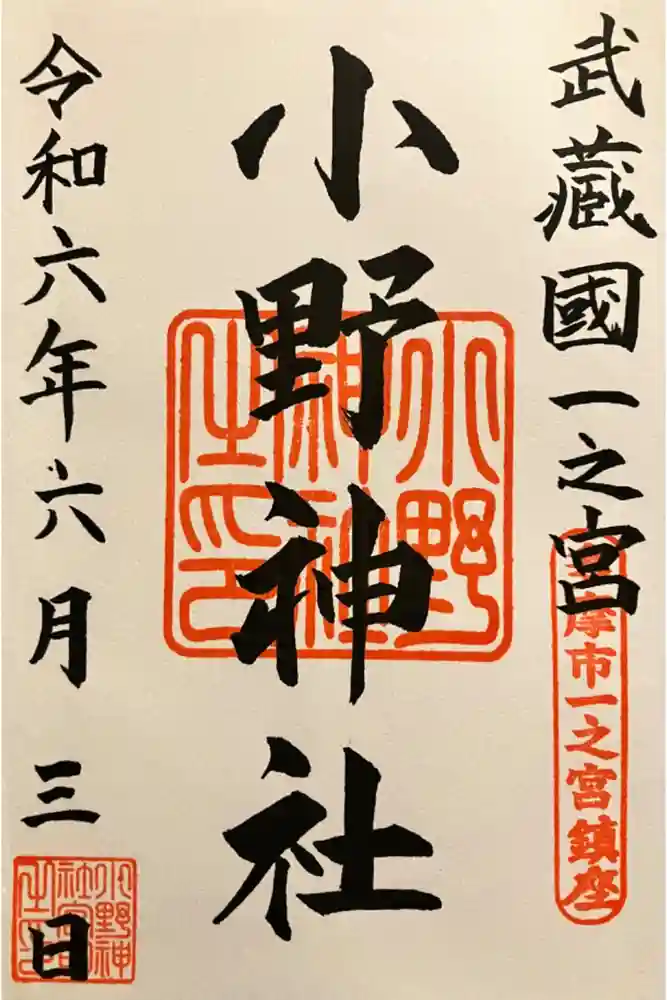 武藏國一之宮
摩市一之宮鎮座
小野神社
小野神社之印
令和六年六月三日
小野神社宮司之印